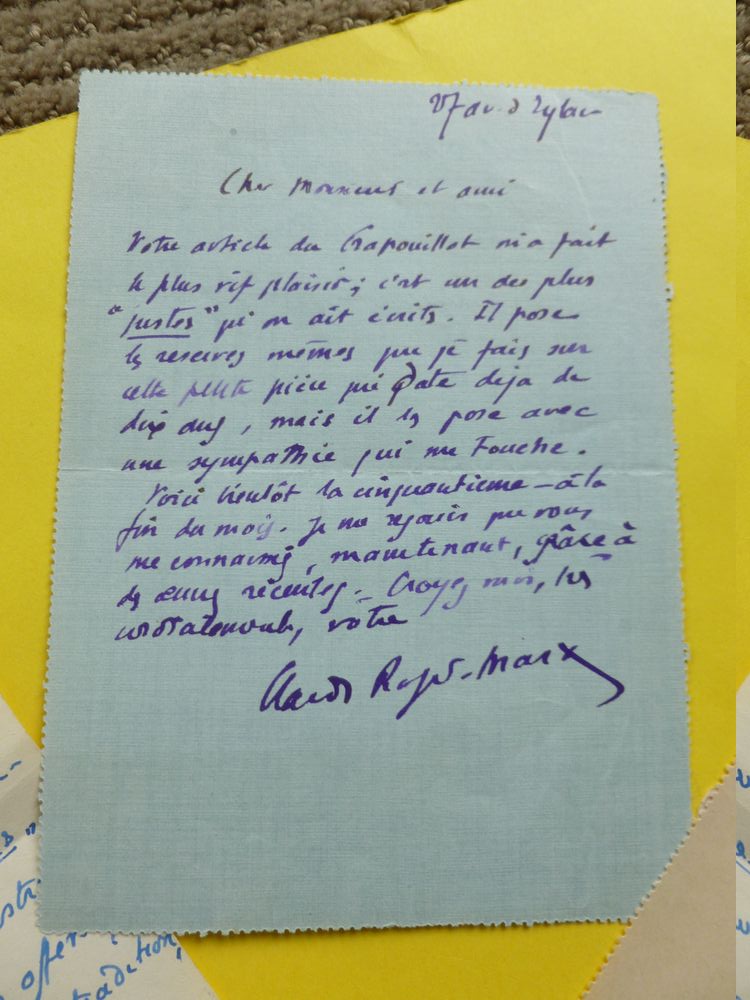 27 av. d'Eylau
Cher Monsieur et ami
Votre article du Crapouillot m'a fait
le plus vif plaisir ; c'est un des plus
"justes" qu'on ait écrits. Il pose
les reserves mêmes que je fais sur
cette petite pièce qui date deja de
dix ans, mais il les pose avec
une sympathie qui me touche.
Voici bientôt la cinquantième – à la
fin du mois. Je me rejouis que vous
me connaissiez, maintenant, grâce à
des œuvres récentes. – Croyez moi, très
cordialement, votre
Claude Roger-Marx
offer
tradition,